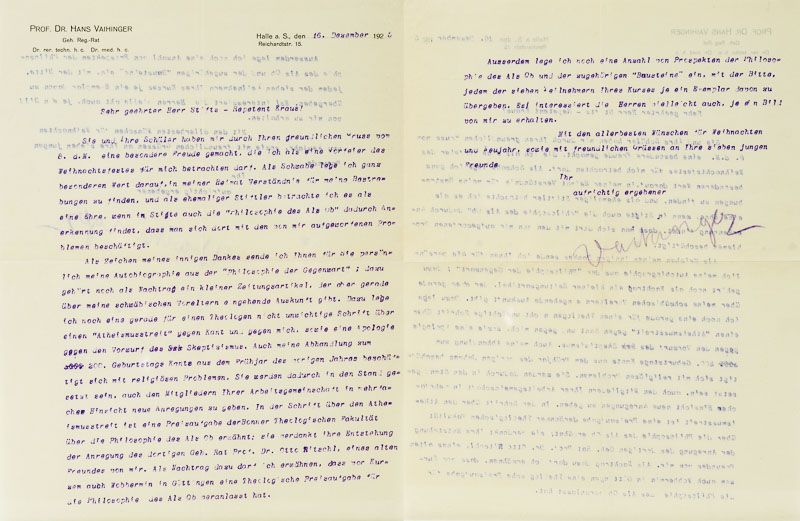 PROF. DR. HANS VAIHINGER
Geh. Reg.-Rat
Dr. rer. techn. h. c. Dr. med. h. c.
Halle a. S., den 16. Dezember 192
Reichardtstr. 15.
Sehr geehrter Herr Stifts - Repetent Kraus!
Sie und Ihre Schüler haben mir durch Ihren freundlichen Gruss vom
6. d.M. eine besondere Freude gemacht, die ich als eine Vorfeier des
Weihnachtsfestes für mich betrachten darf. Als Schwabe lege ich ganz
besonderen Wert darauf, in meiner Heimat Verständnis für meine Bestre-
bungen zu finden, und als ehemaliger Stiftler betrachte ich es als
eine Ehre, wenn im Stifte auch die "Philosophie des Als Ob" dadurch An-
erkennung findet, dass man sich dort mit den von mir aufgeworfenen Pro-
blemen beschäftigt.
Als Zeichen meines innigen Dankes sende ich Ihnen für Sie persön-
lich meine Autobiographie aus der "Philosophie der Gegenwart"; dazu
gehört noch als Nachtrag ein kleiner Zeitungsartikel, der über gerade
über meine schwäbischen Voreltern eingehende Auskunft gibt. Dazu lege
ich noch eine gerade für einen Theologen nicht unwichtige Schrift über
einen "Atheismusstreit" gegen Kant und gegen mich, sowie eine Apologie
gegen den Vorwurf des Skeptizismus. Auch meine Abhandlung zum
200. Geburtstage Kants aus dem Frühjahr des vorigen Jahres beschäf-
tigt sich mit religiösen Problemen. Sie werden dadurch in den Stand ge-
setzt sein, auch den Mitgliedern Ihrer Arbeitsgemeinschaft in mehrfa-
cher Hinsicht neue Anregungen zu geben. In der Schrift über den Athe-
ismusstreit ist eine Preisaufgabe der Bonner Theologischen Fakultät
über die Philosophie des Als Ob erwähnt; sie verdankt ihre Entstehung
der Anregung des dortigen Geh. Rat Prof. Dr. Otto Ritschl, eines alten
Freundes von mir. Als Nachtrag dazu darf ich erwähnen, dass vor Kur-
zem auch Wobbermin in Göttingen eine Theologische Preisaufgabe für
die Philosophie des Als Ob veranlasst hat.
Ausserdem lege ich noch eine Anzahl von Prospekten der Philoso-
phie des Als Ob und der zugehörigen "Bausteine" ein, mit der Bitte,
jedem der sieben Teilnehmern Ihres Kurses je ein Exemplar davon zu
übergeben. Es interessiert die Herren vielleicht auch, je ein Bild
von mir zu erhalten.
Mit den allerbesten Wünschen für Weihnachten
und Neujahr, sowie mit freundlichen Grüssen an Ihre sieben jungen
Freunde
Ihr
aufrichtig ergebener
Vaihinger